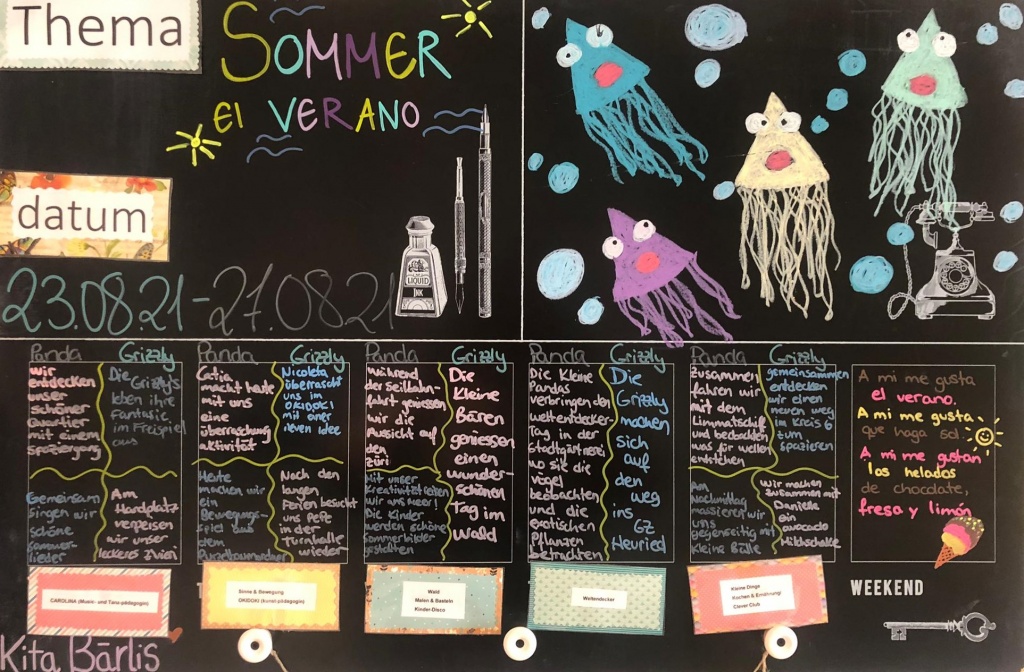 Thema
SOMMER
el VERANO
datum
23.08.21-27.08.21
LIQUID
INK
Panda Grizzly
wir
entdecken
unser
schöner
Quartier
mit einem
spaziergang
Die Grizzly's
leben ihre
Fantasie
im Freispiel
aus
Gemeinsam
singen wir
schöne
sommer-
lieder
Am
Hardplatz
verpeisen
wir unser
leckeres Zvieri
Panda Grizzly
Catia
macht heute
mit uns
eine
überraschung
aktivität
Nicoleta
überrascht
uns im
OKIDOKI
mit einer
neuen idee
Heute
machen wir
ein
Bewegungs-
spiel auf
dem
Purzelbaumboden
Nach den
langen
Ferien besucht
uns Pepe
in der
turnhalle
wieder
Panda Grizzly
während
der Seilbahn-
fahrt geniessen
wir die
Aussicht auf
den
züri
Die
Kleine
Bären
geniessen
einen
wunder-
schönen
Tag im
Wald
Mit unser
Kreativität reisen
wir ans Meer!
Die Kinder
werden schöne
sommerbilder
gestalten
Panda Grizzly
Die Kleine
Pandas
verbringen den
weltentdecker-
Tag in der
Stadtgärtnerei
wo sie die
vögel
beobachten
und die
exotischen
Pflanzen
betrachten
Die
Grizzly
machen
sich
auf
den
weg
ins
GZ
Heuried
Panda Grizzly
Zusammen
fahren wir
mit dem
Limmatschiff
und beobachten
was für wellen
entstehen
gemeinsammen
entdecken
wir einen
neuen weg
im Kreis 6
zum
spazieren
Am
Nachmittag
massieren wir
uns
gegenseitig mit
Kleine Bälle
Wir machen
zusammen mit
Daniela
ein
avocado
Milchshake
A mi me gusta
el verano.
A mi me gusta
que haga sol.
A mi me gustan
los helados
de chocolate,
fresa y limón
CAROLINA (Music- und Tanz-pädagogin)
Sinne & Bewegung
OKIDOKI (kunst-pädagogin)
Wald
Malen & Basteln
Kinder-Disco
Weltendecker
Kleine Dinge
Kochen & Ernährung/
Clever Club
WEEKEND
Kita Bärlis